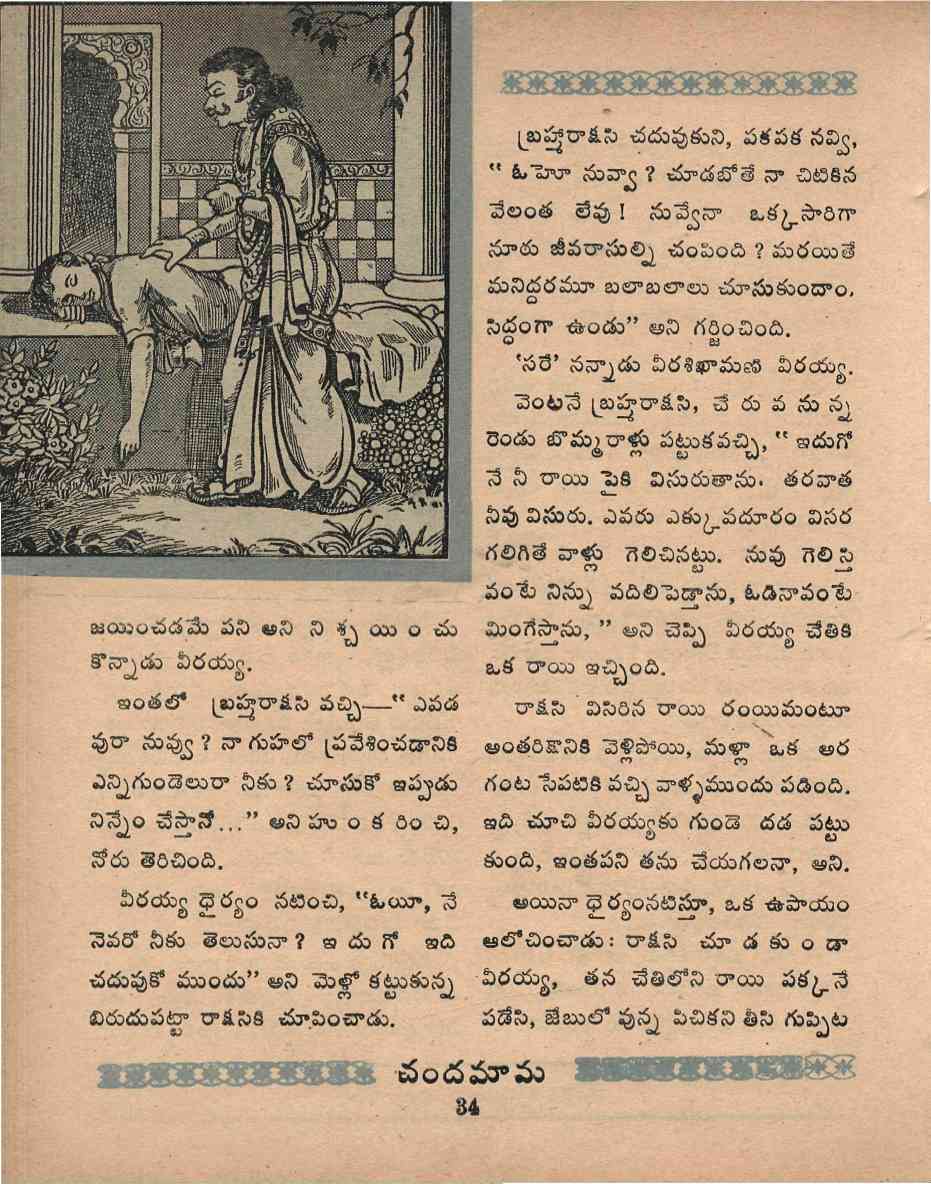 జయించడమే పని అని ని శ్చ యిం చు
కొన్నాడు వీరయ్య.
ఇంతలో బ్రహ్మరాక్షసి వచ్చి—“ ఎవడ
వురా నువ్వు ? నా గుహలో ప్రవేశించడానికి
ఎన్నిగుండెలురా నీకు ? చూసుకో ఇప్పుడు
నిన్నేం చేస్తానో...” అని హుం క రిం చి,
నోరు తెరిచింది.
వీరయ్య ధైర్యం నటించి, “ఓయీ, నే
నెవరో నీకు తెలుసునా ? ఇ దు గో ఇది
చదువుకో ముందు” అని మెళ్లో కట్టుకున్న
బిరుదుపట్టా రాక్షసికి చూపించాడు.
బ్రహ్మారాక్షసి చదువుకుని, పకపక నవ్వి,
“ ఓహెూ నువ్వా ? చూడబోతే నా చిటికిన
వేలంత లేవు ! నువ్వేనా ఒక్కసారిగా
నూరు జీవరాసుల్ని చంపింది ? మరయితే
మనిద్దరమూ బలాబలాలు చూసుకుందాం,
సిద్ధంగా ఉండు” అని గర్జించింది.
‘సరే’ నన్నాడు వీరశిఖామణి వీరయ్య.
వెంటనే బ్రహ్మరాక్షసి, చే రు వ ను న్న
రెండు బొమ్మరాళ్లు పట్టుకవచ్చి, “ ఇదుగో
నే నీ రాయి పైకి విసురుతాను. తరవాత
నీవు విసురు. ఎవరు ఎక్కుపదూరం విసర
గలిగితే వాళ్లు గెలిచినట్టు. నువు గెలిస్తి
వంటే నిన్ను వదిలిపెడ్తాను, ఓడినావంటే
మింగేస్తాను, ” అని చెప్పి వీరయ్య చేతికి
ఒక రాయి ఇచ్చింది.
రాక్షసి విసిరిన రాయి రంయిమంటూ
అంతరిక్షానికి వెళ్లిపోయి, మళ్లా ఒక అర
గంట సేపటికి వచ్చి వాళ్ళముందు పడింది.
ఇది చూచి వీరయ్యకు గుండె దడ పట్టు
కుంది, ఇంతపని తను చేయగలనా, అని.
అయినా ధైర్యంనటిస్తూ, ఒక ఉపాయం
ఆలోచించాడు: రాక్షసి చూ డ కుం డా
వీరయ్య, తన చేతిలోని రాయి పక్కనే
పడేసి, జేబులో వున్న పిచికని తీసి గుప్పిట
చందమామ
34